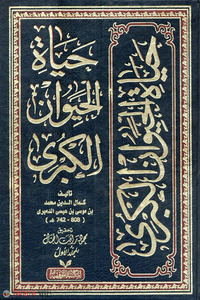 حياة الحيوان الكبرى
حياة
الحيوان
الكبرى
تأليف
كمال الدين محمد
بن موسى بن عيسى الدميري
(742 - 808 هـ)
تحقيق